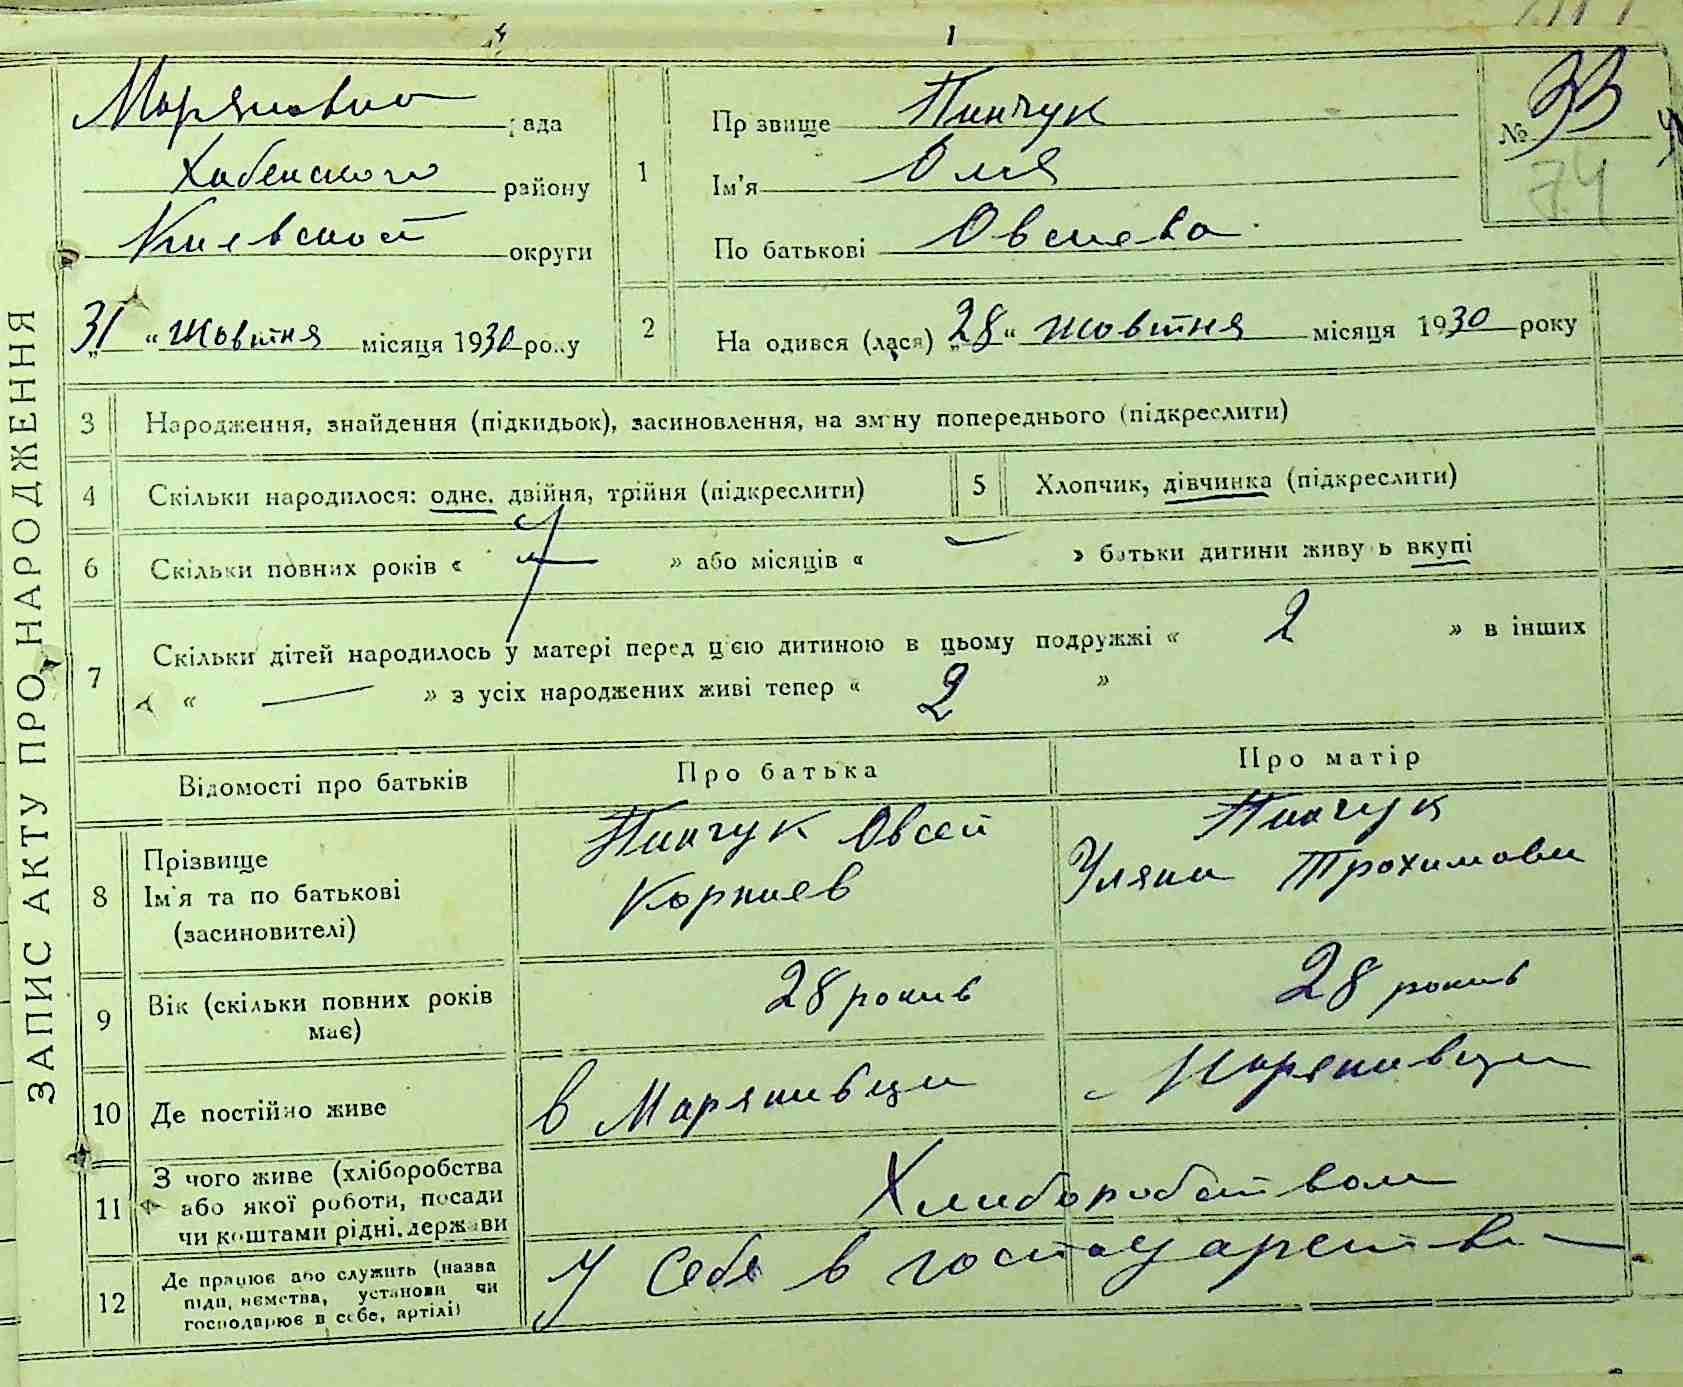 ЗАПИС АКТУ ПРО НАРОДЖЕННЯ
Маряновка рада
Хабенского району
Киевской округи
31 " жовтня місяця 1930 року
1
Прізвище Пинчук
Ім'я Оля
По батькові Овсиева
№ 33
74
2
На одився (лася) „28" жовтня місяця 1930 року
3 Народження, знайдення (підкидьок), засиновлення, на зміну попереднього (підкреслити)
4 Скільки народилося: одне, двійня, трійня (підкреслити)
5 Хлопчик, дівчинка (підкреслити)
6 Скільки повних років « 7 » або місяців « — » батьки дитини живуть вкупі
7 Скільки дітей народилось у матері перед цією дитиною в цьому подружжі « 2 » в інших
« — » з усіх народжених живі тепер « 2 »
Відомості про батьків
Про батька
Про матір
8 Прізвище
Ім'я та по батькові
(засиновителі)
Пинчук Овсей
Корниев
Пинчук
Уляна Трохимова
9 Вік (скільки повних років
має)
28 рокив
28 рокив
10 Де постійно живе
в Марянивци
Марянивци
11 З чого живе (хліборобства
або якої роботи, посади
чи коштами рідні, держави
Хлиборобством
12 Де працює або служить (назва
підприємства, установи чи
господарює в себе, артілі)
У себе в господарстви